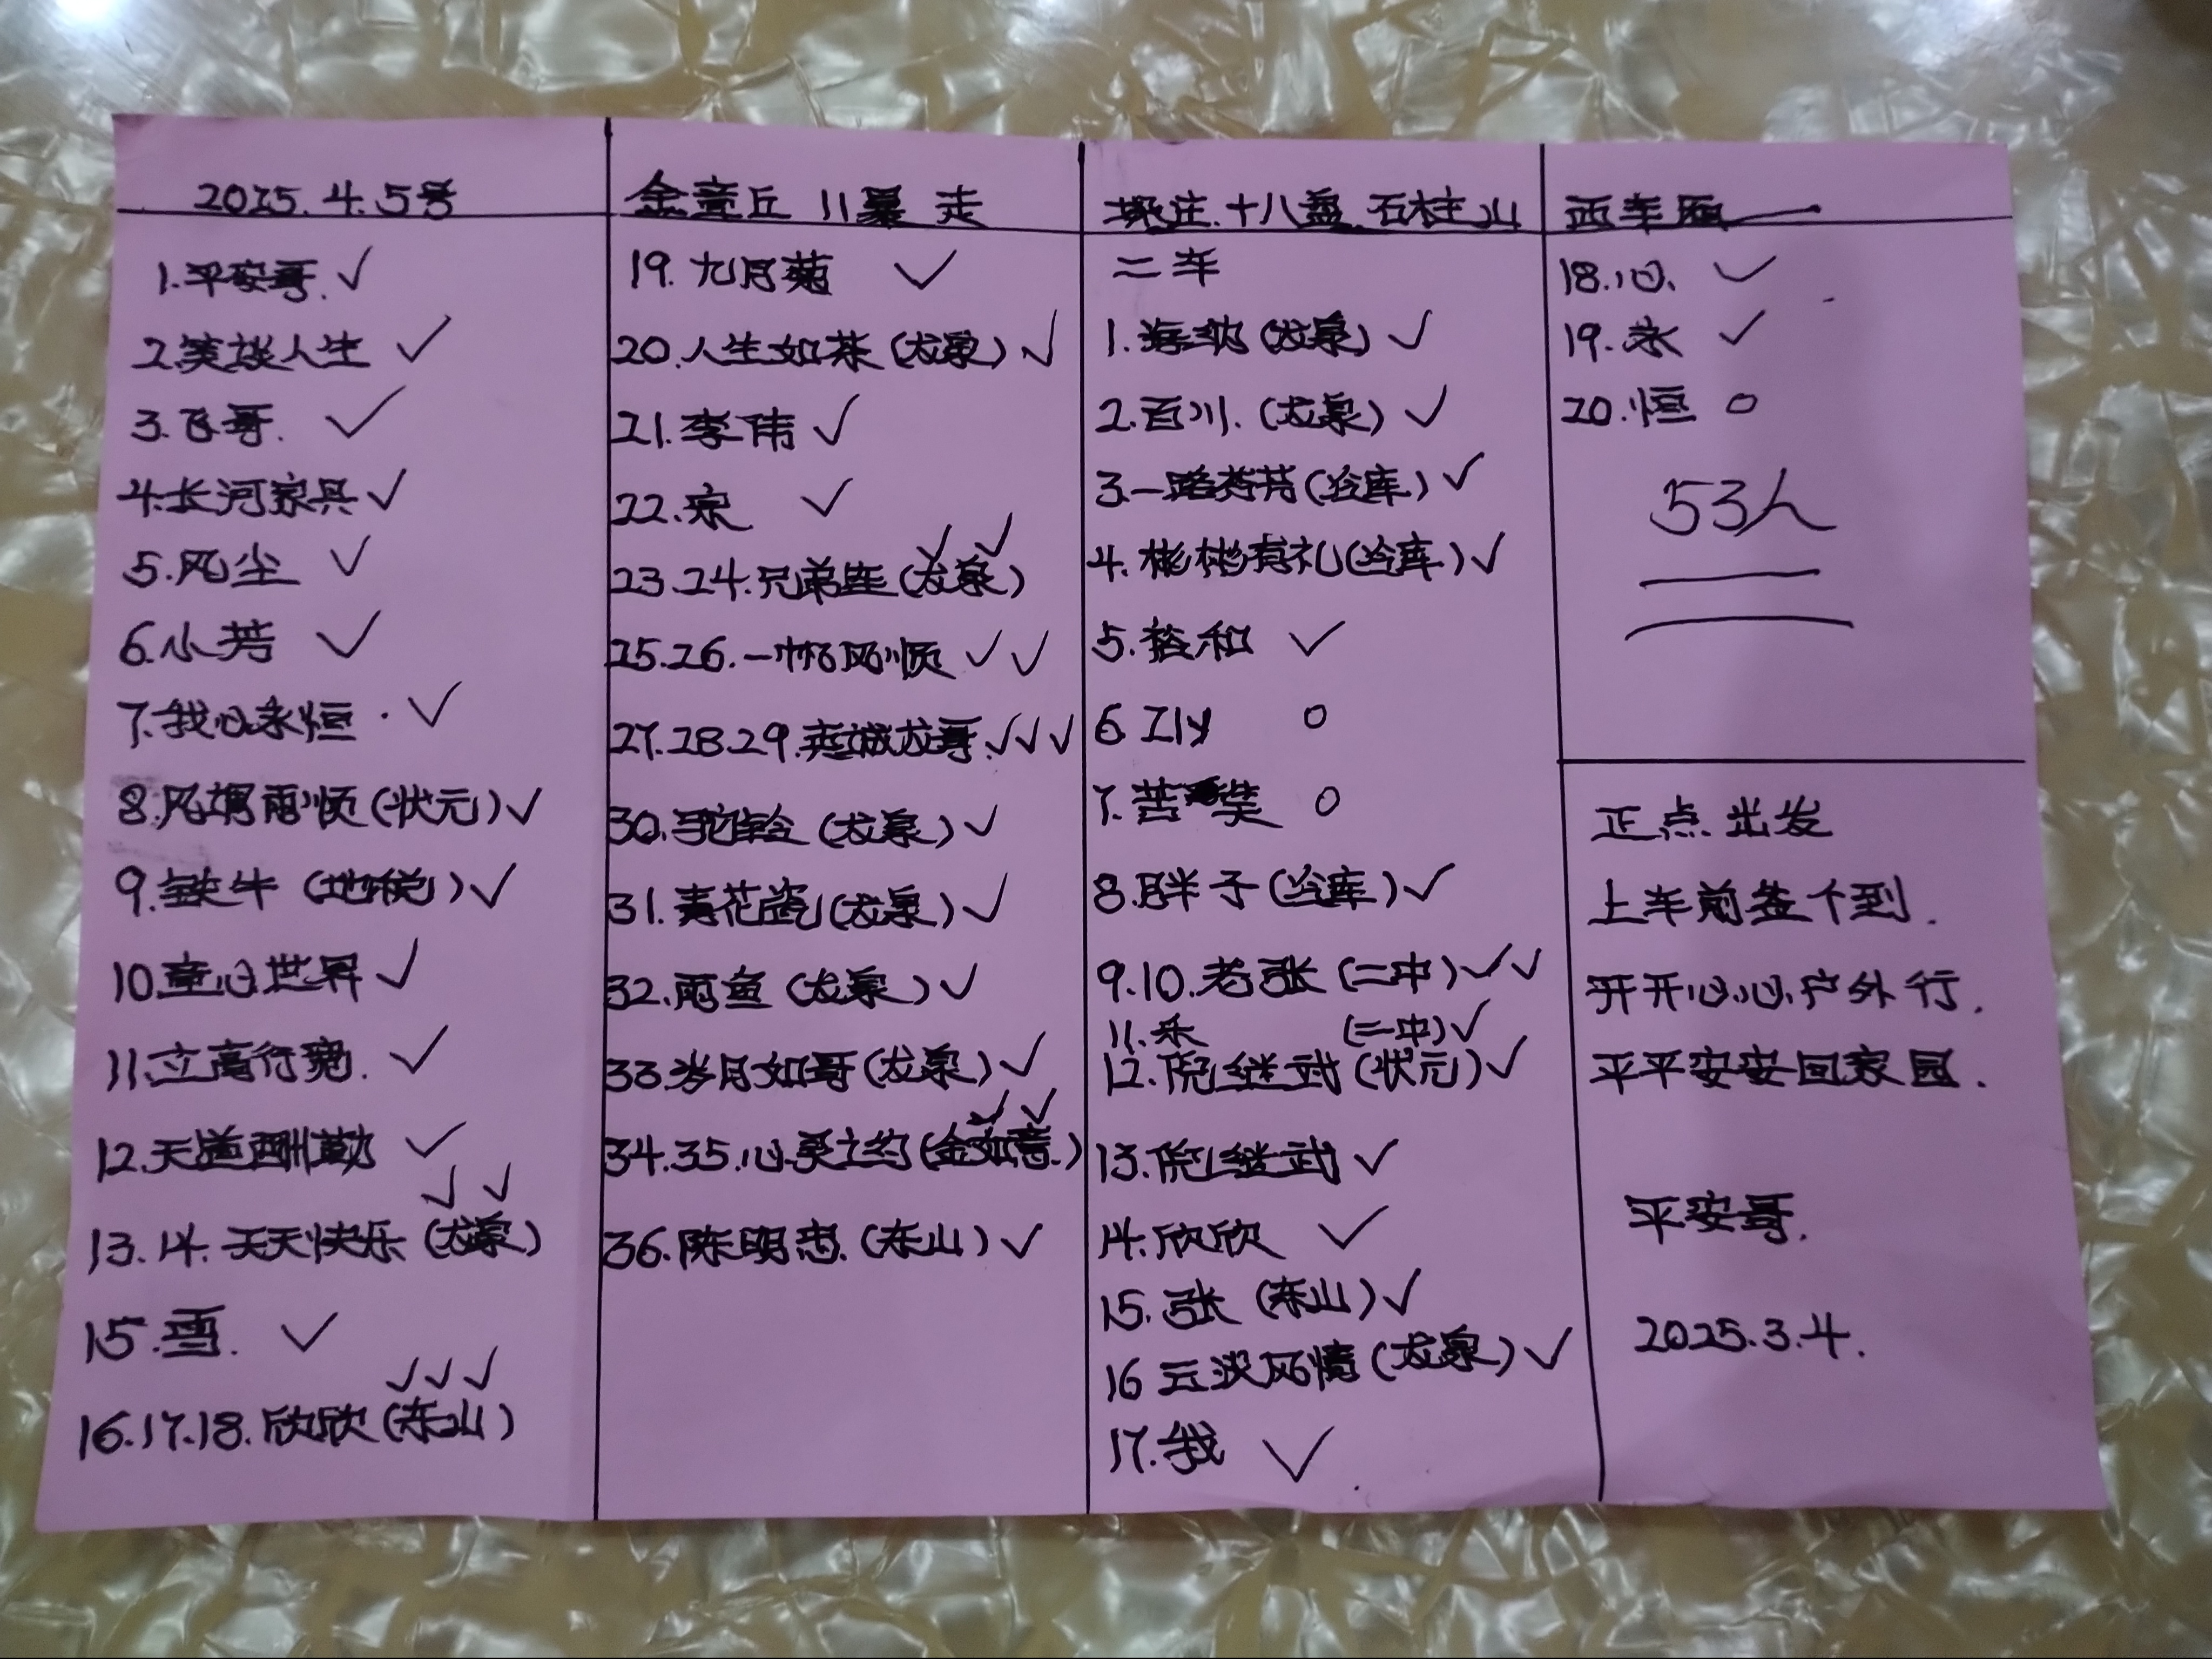 2025.4.5号
1.平安哥.✓
2.笑谈人生 ✓
3.飞哥. ✓
4.长河家具✓
5.风尘 ✓
6.小芳 ✓
7.我心永恒. ✓
8.风调雨顺(状元)✓
9.铁牛(地税)✓
10.童心世界✓
11.立高行宽. ✓
12.天道酬勤 ✓
✓✓
13.14.天天快乐(龙泉)
15.雪. ✓
✓✓✓
16.17.18.欣欣(东山)
金章丘 11暴走
19.九月菊 ✓
20.人生如茶(龙泉)✓
21.李伟 ✓
22.宋 ✓
✓✓
23.24.兄弟连(龙泉)
25.26.一帆风顺 ✓✓
27.28.29.英城龙哥.✓✓✓
30.驼铃(龙泉)✓
31.青花瓷(龙泉)✓
32.雨鱼(龙泉)✓
33.岁月如哥(龙泉)✓
✓✓
34.35.心灵之约(金如意.)
36.陈明忠.(东山)✓
庄.十八盘.石柱山
二车
1.海纳(龙泉)✓
2.百川.(龙泉)✓
3.一路芬芳(冷库)✓
4.彬彬有礼(冷库)✓
5.和 ✓
6 Zly ○
7.苦笑 ○
8.胖子(冷库)✓
9.10.老张(二中)✓✓
11.禾 (二中)✓
12.倪继武(状元)✓
13.倪继武 ✓
14.欣欣 ✓
15.张(东山)✓
16 云淡风情(龙泉)✓
17.我 ✓
西车厢
18.心. ✓
19.永 ✓
20.恒 ○
53人
正点出发
上车前签个到.
开开心心户外行.
平平安安回家园.
平安哥.
2025.3.4.